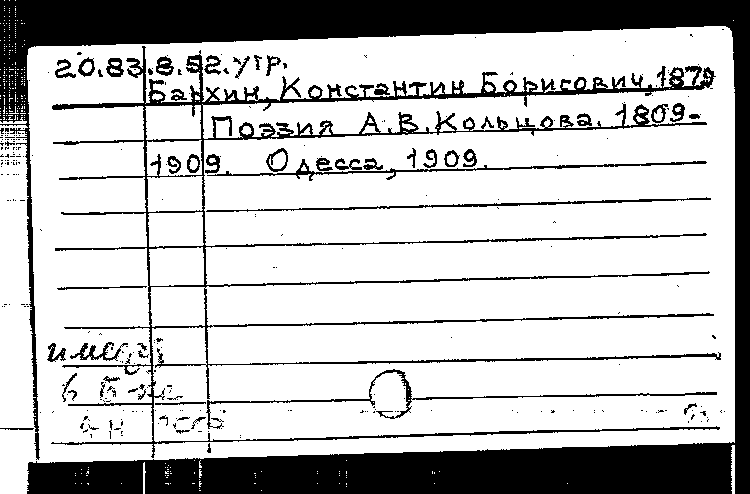 20.83.8.52.утр.
Бархин, Константин Борисович, 1879
Поэзия А.В.Кольцова. 1809-
1909. Одесса, 1909.
имеется
в Б-ке
АН СССР